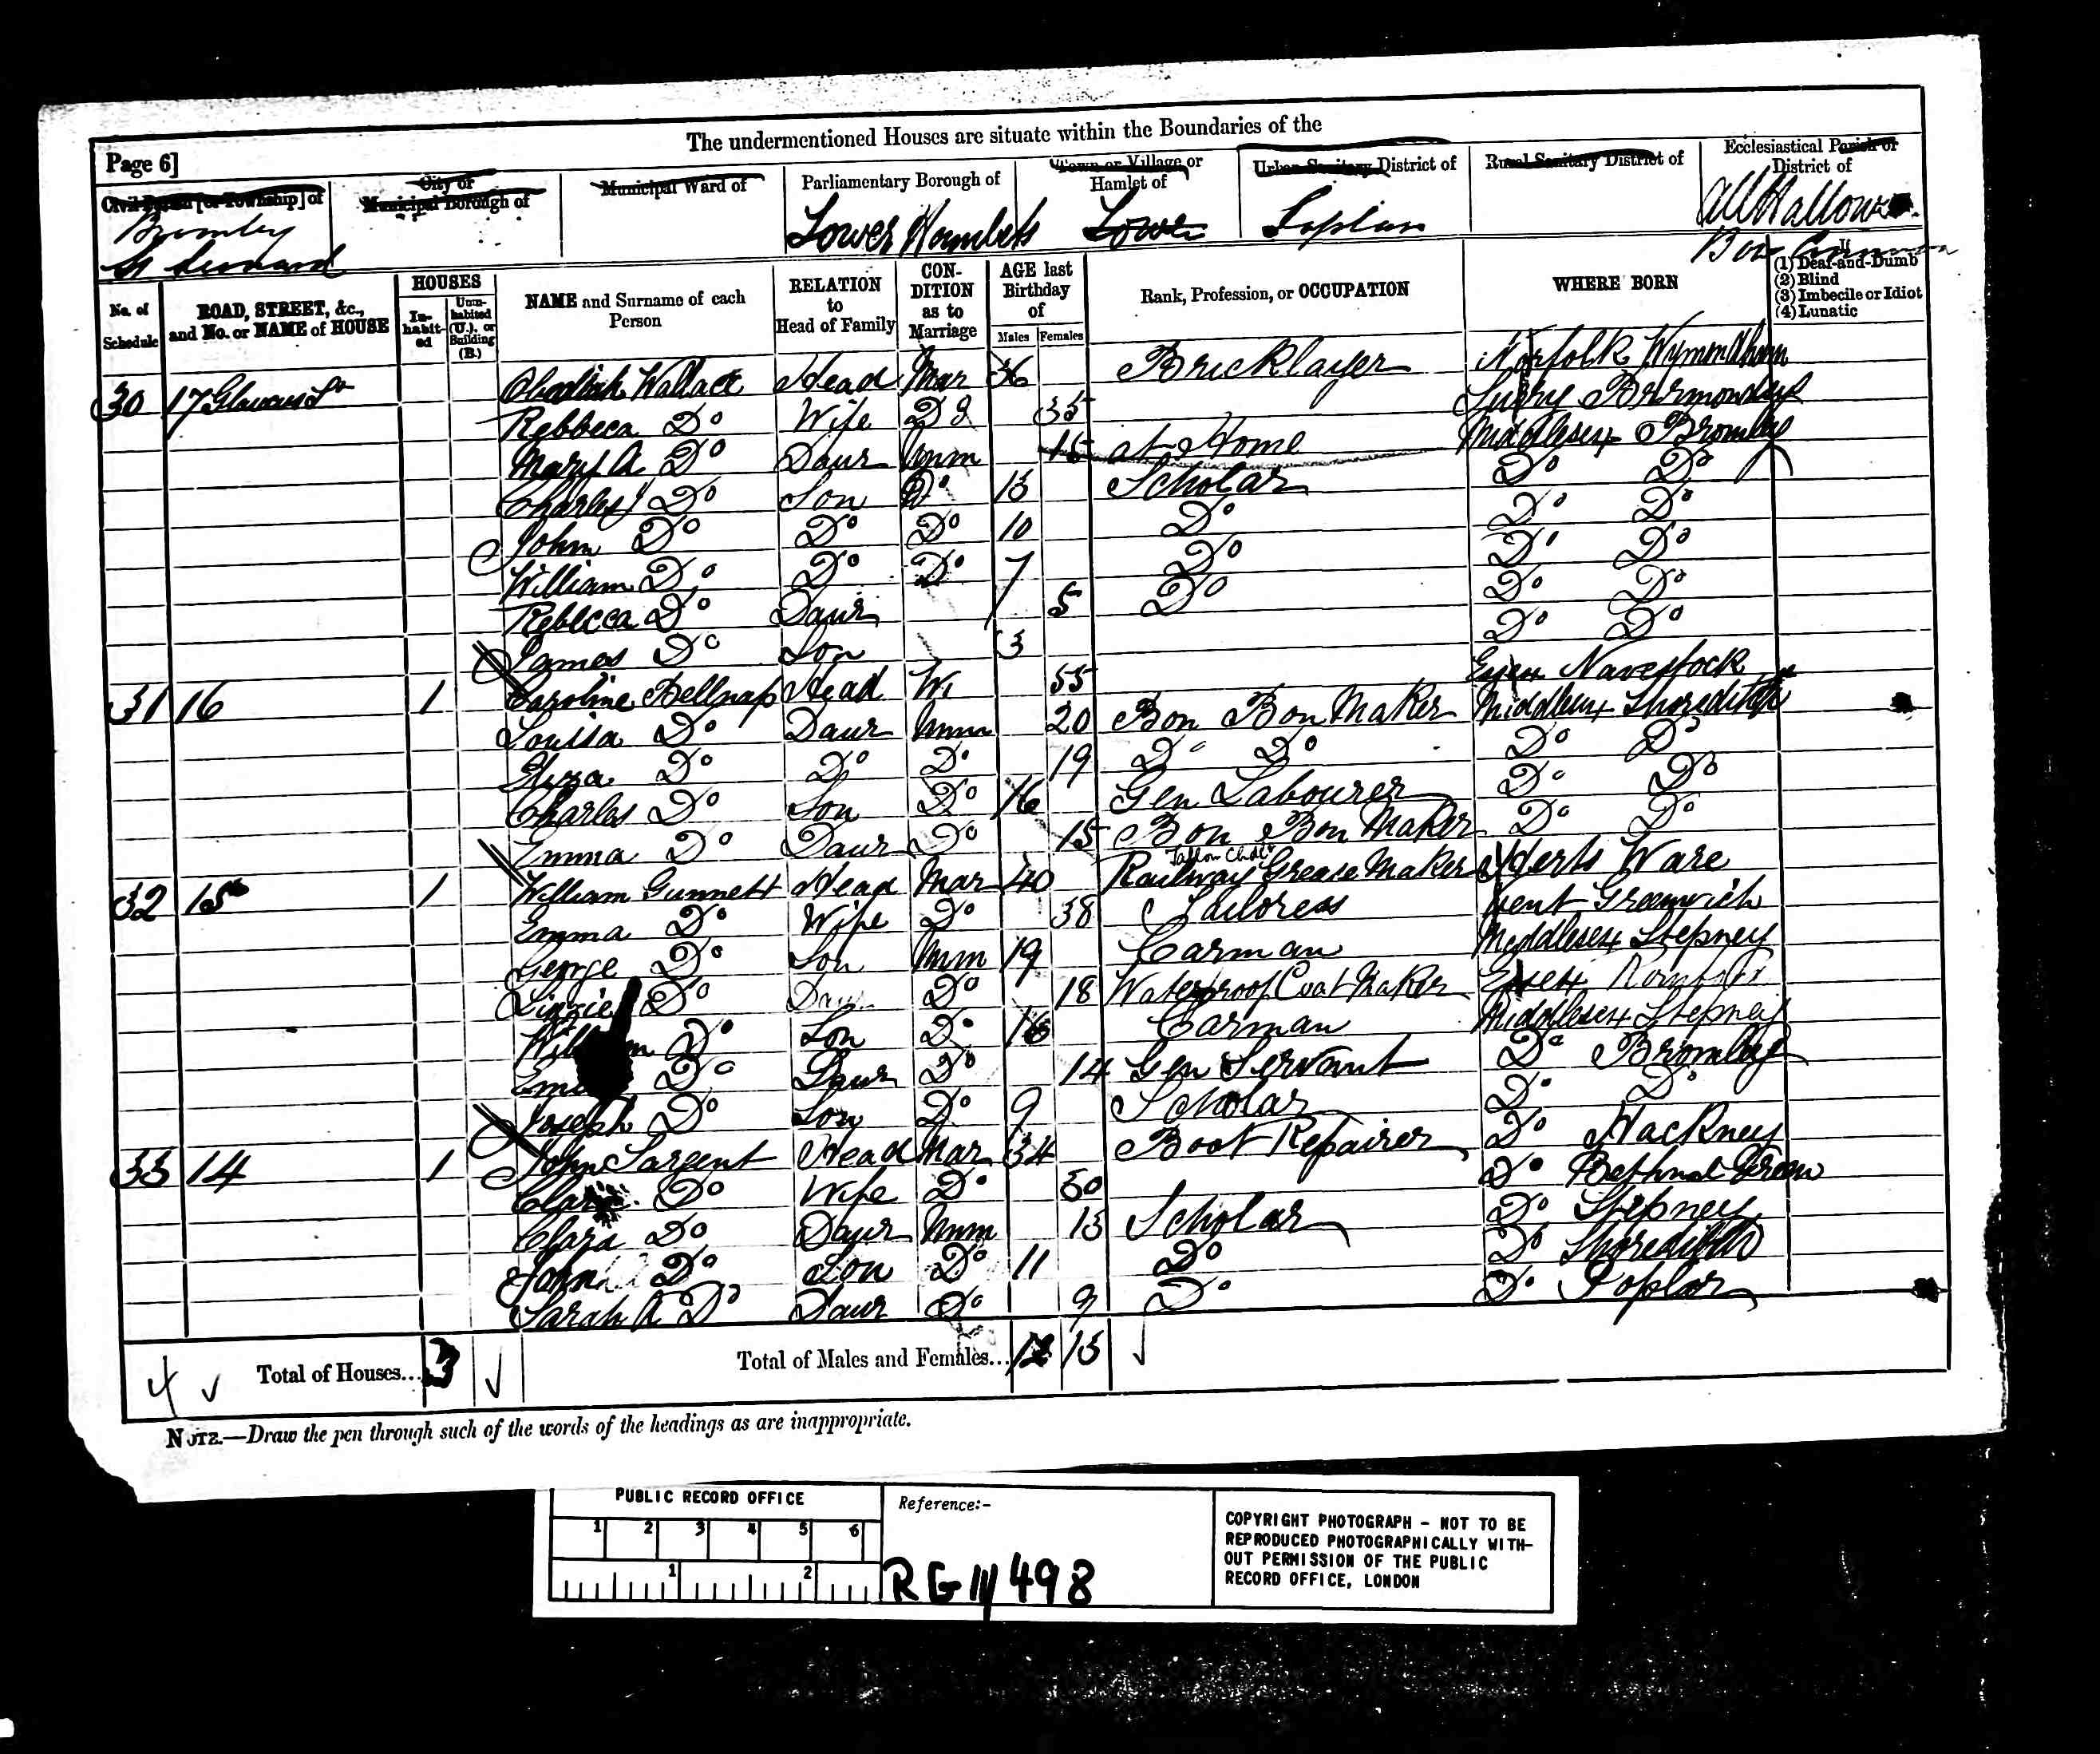 The undermentioned Houses are situate within the Boundaries of the
Page 6]
Civil Parish [or Township] of City or Municipal Borough of Municipal Ward of Parliamentary Borough of Town or Village or Hamlet of Urban Sanitary District of Rural Sanitary District of Ecclesiastical Parish or District of
Bromley Tower Hamlets Poplar All Hallows
St Leonard Bow Common
No. of Schedule ROAD, STREET, &c., and No. or NAME of HOUSE HOUSES Inhabited Uninhabited (U.), or Building (B.) NAME and Surname of each Person RELATION to Head of Family CONDITION as to Marriage AGE last Birthday of Males Females Rank, Profession, or OCCUPATION WHERE BORN If (1) Deaf-and-Dumb (2) Blind (3) Imbecile or Idiot (4) Lunatic
30 17 Glaucus St Obadiah Wallace Head Mar 36 Bricklayer Norfolk Wymondham
Rebbeca Do Wife Do 35 Surry Bermondsey
Mary A Do Daur Unm 15 at Home Middlesex Bromley
Charles J Do Son Do 13 Scholar Do Do
John Do Do Do 10 Do Do Do
William Do Do Do 7 Do Do Do
Rebecca Do Daur 5 Do Do Do
James Do Son 3 Do Do
31 16 1 Caroline Bellnap Head Wi 55 Essex Navestock
Louisa Do Daur Unm 20 Bon Bon Maker Middlesex Shoreditch
Eliza Do Do Do 19 Do Do Do Do
Charles Do Son Do 16 Gen Labourer Do Do
Emma Do Daur Do 15 Bon Bon Maker Do Do
32 15 1 William Gunnett Head Mar 40 Railway Grease Maker Herts Ware
Emma Do Wife Do 38 Tailoress Kent Greenwich
George Do Son Unm 19 Carman Middlesex Stepney
Lizzie Do Daur Do 18 Waterproof Coat Maker Essex Romford
William Do Son Do 16 Carman Middlesex Stepney
Do Daur Do 14 Gen Servant Do Bromley
Joseph Do Son Do 9 Scholar Do Do
33 14 1 John Sargent Head Mar 34 Boot Repairer Do Hackney
Clara Do Wife Do 30 Do Bethnal Green
Clara Do Daur Unm 13 Scholar Do Stepney
John Do Son Do 11 Do Do Shoreditch
Sarah A Do Daur Do 9 Do Do Poplar
4 Total of Houses... 3 Total of Males and Females... 12 13
NOTE.—Draw the pen through such of the words of the headings as are inappropriate.
PUBLIC RECORD OFFICE
1 2 3 4 5 6
1 2
Reference:-
RG 11/498
COPYRIGHT PHOTOGRAPH - NOT TO BE
REPRODUCED PHOTOGRAPHICALLY WITH-
OUT PERMISSION OF THE PUBLIC
RECORD OFFICE, LONDON